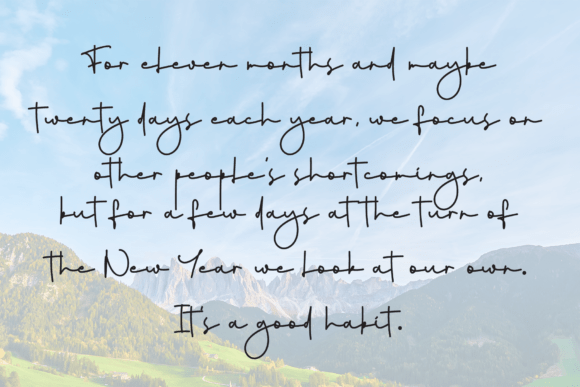 For eleven months and maybe
twenty days each year, we focus on
other people's shortcomings,
but for a few days at the turn of
the New Year we look at our own.
It's a good habit.